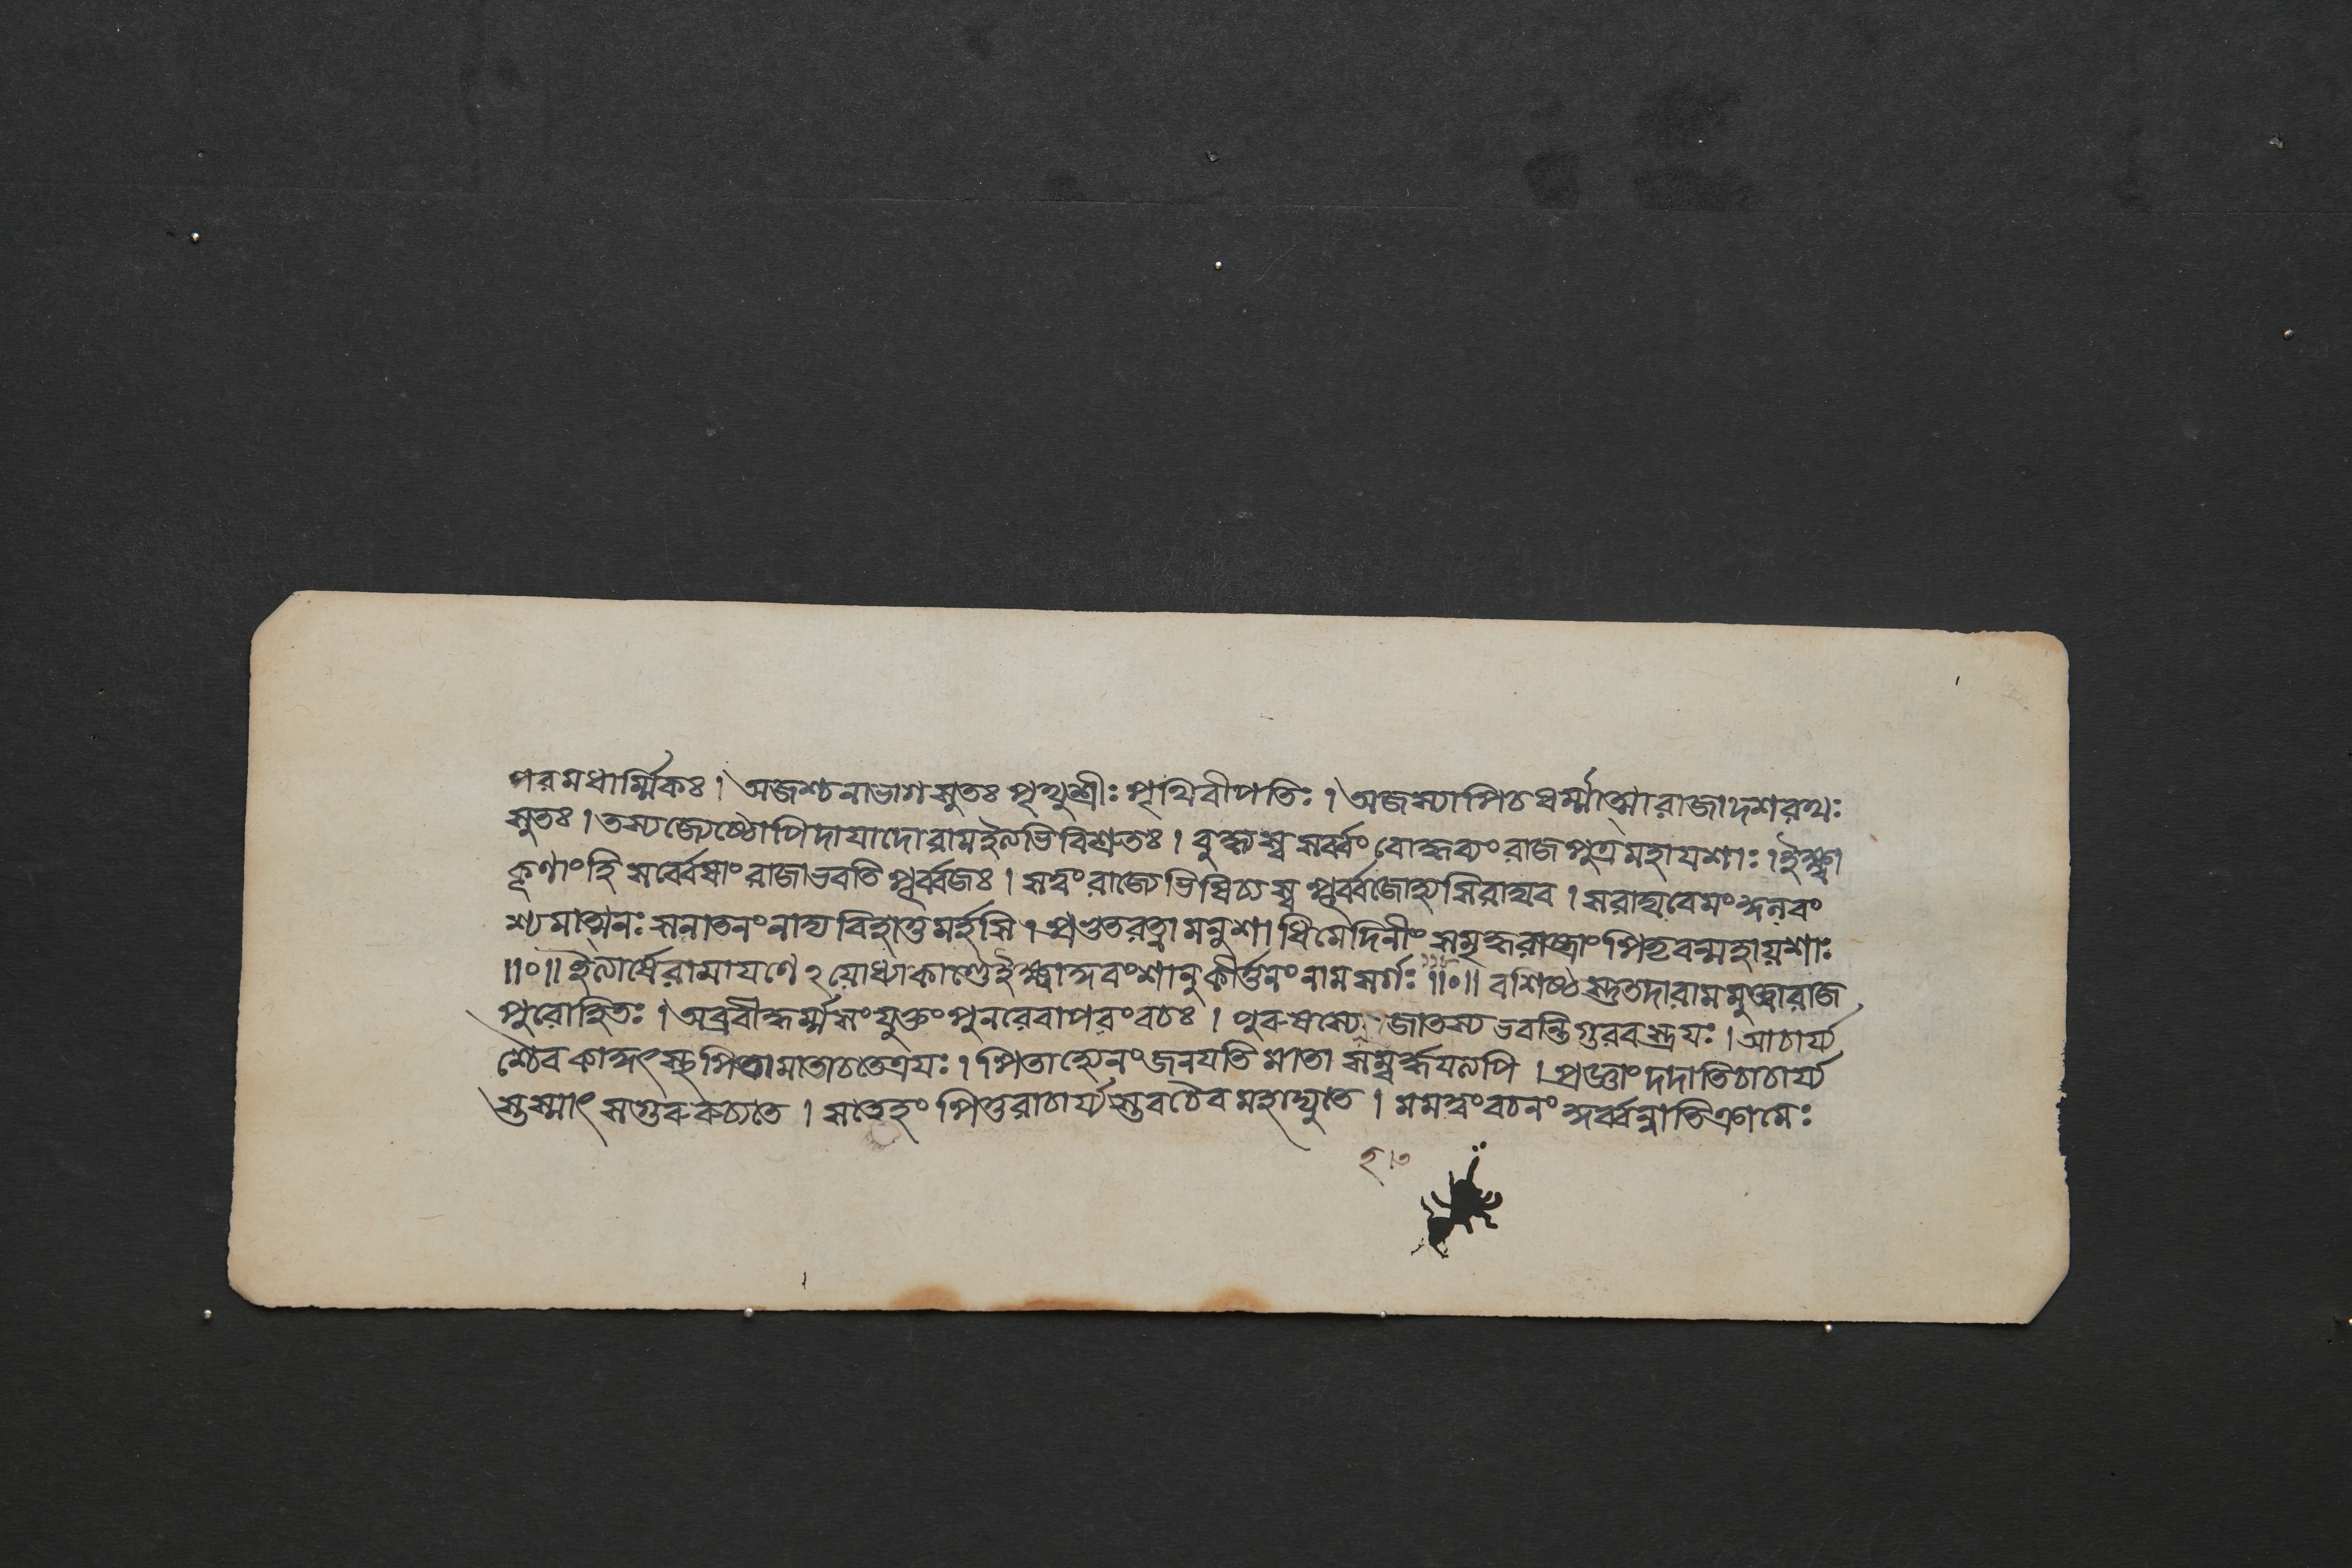 পরমধার্ম্মিকঃ। অজশ্চনাভাগসুতঃ পৃথুশ্রীঃ পৃথিবীপতিঃ। অজস্যাপিচধর্ম্মাত্মারাজাদশরথঃ
সুতঃ। তস্যজ্যেষ্ঠোপিদাযাদোরামইত্যভিবিশ্রুতঃ। বুদ্ধ্যস্ব সর্ব্বং বোদ্ধব্যং রাজপুত্রমহাযশাঃ। ইক্ষ্বা
কূণাং হি সর্ব্বেষাং রাজাভবতি পূর্ব্বজঃ। সত্বং রাজ্যেভিষিচ্যস্ব পূর্ব্বজোহ্যসিরাঘব। সরাঘবেমং
শ্যমাত্মনঃ সনাতনং নাদ্য বিহাতুমর্হসি। প্রভুতরত্নামনুশাধিমেদিনীং সমৃদ্ধরাষ্ট্রাং পিতৃবন্মহায়শাঃ
॥০॥ ইত্যার্ষেরামাযণে ২য়োধ্যাকাণ্ডেইক্ষ্বাকুবংশানুকীর্ত্তনং নাম সর্গঃ ॥০॥ বশিষ্ঠস্তুতদারামমুক্ত্বারাজ
পুরোহিতঃ। অব্রবীদ্ধর্ম্মসংযুক্তং পুনরেবাপরং বচঃ। পুরুষস্যে জাতস্য ভবন্তিগুরবস্ত্রযঃ। আচার্য্য
শ্চৈব কাকুৎস্থ পিতামাতাচতেত্রযঃ। পিতাহ্যেনং জনযতি মাতা সম্বর্দ্ধযত্যপি। প্রজ্ঞাং দদাতিচাচার্য্য
স্তস্মাৎ সগুরুরুচ্যতে। সতেহং পিতুরাচার্য্যস্তবচৈব মহাদ্যুতে। মমত্বং বচনং